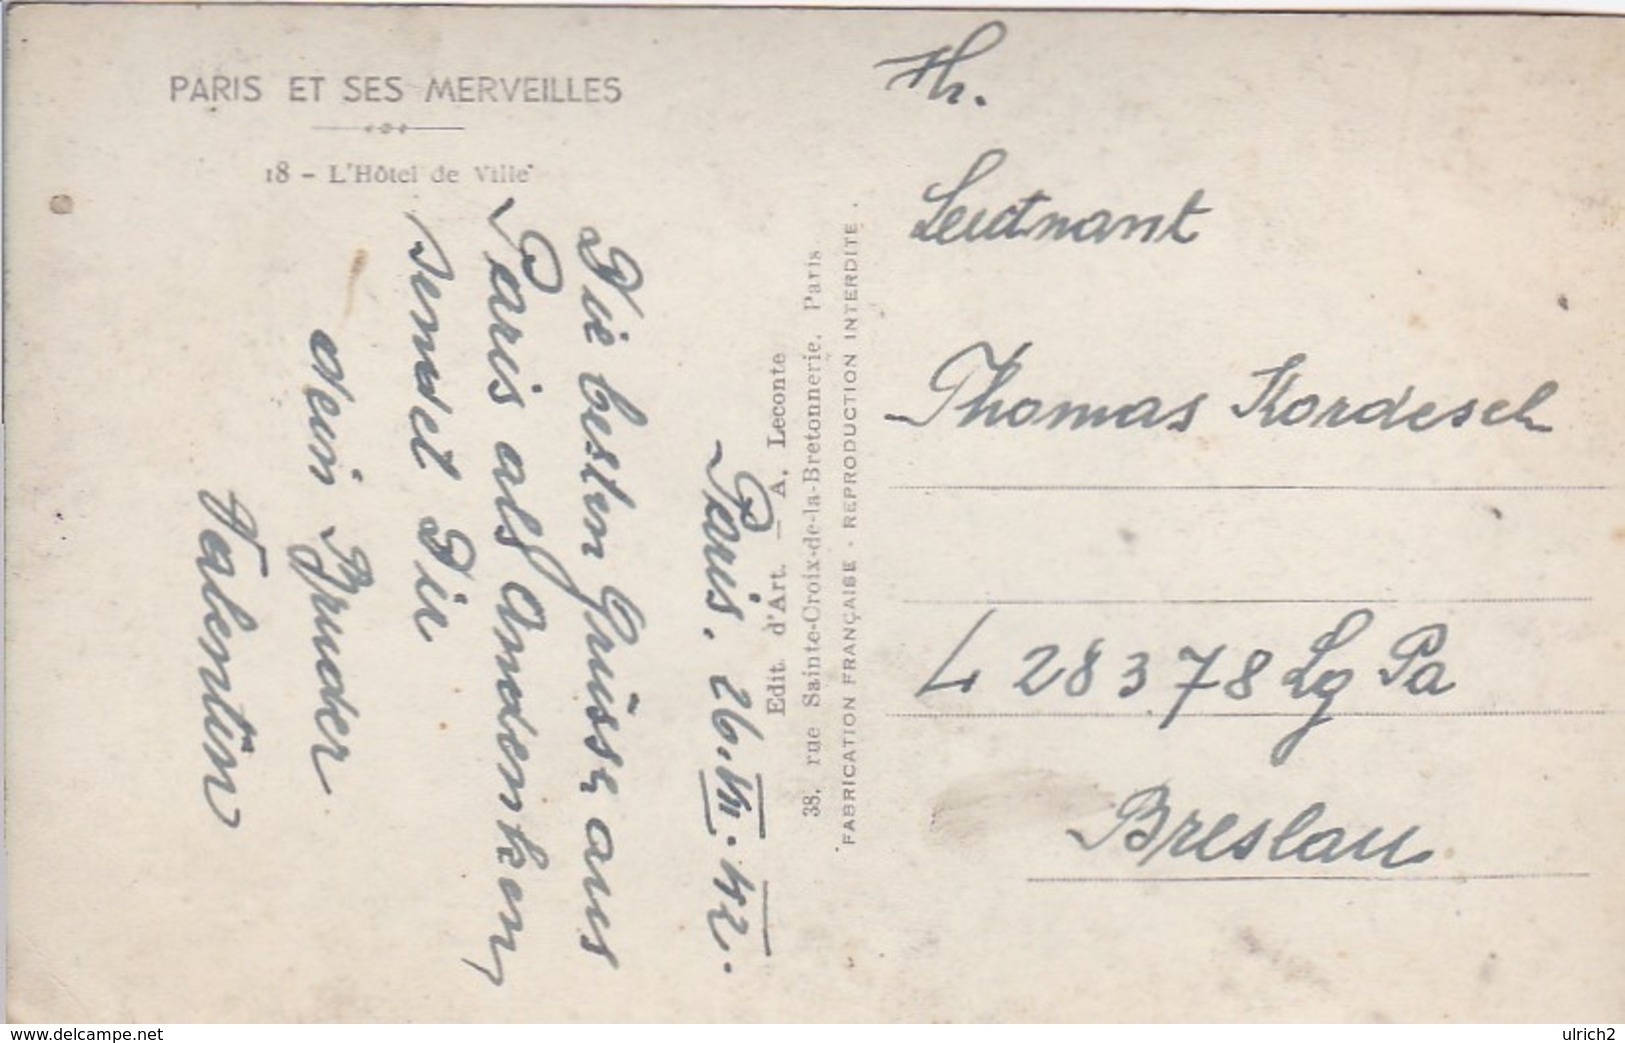 PARIS ET SES MERVEILLES
18 - L'Hôtel de Ville
Paris. 26.VIII.42.
Die besten Grüsse aus
Paris als Andenken,
sendet Dir
dein Bruder
Valentin
Edit. d'Art. — A. Leconte
38, rue Sainte-Croix-de-la-Bretonnerie, Paris
FABRICATION FRANÇAISE - REPRODUCTION INTERDITE.
Leutnant
Thomas Kordesch
L 28378 Lg Pa
Breslau
www.delcampe.net
ulrich2